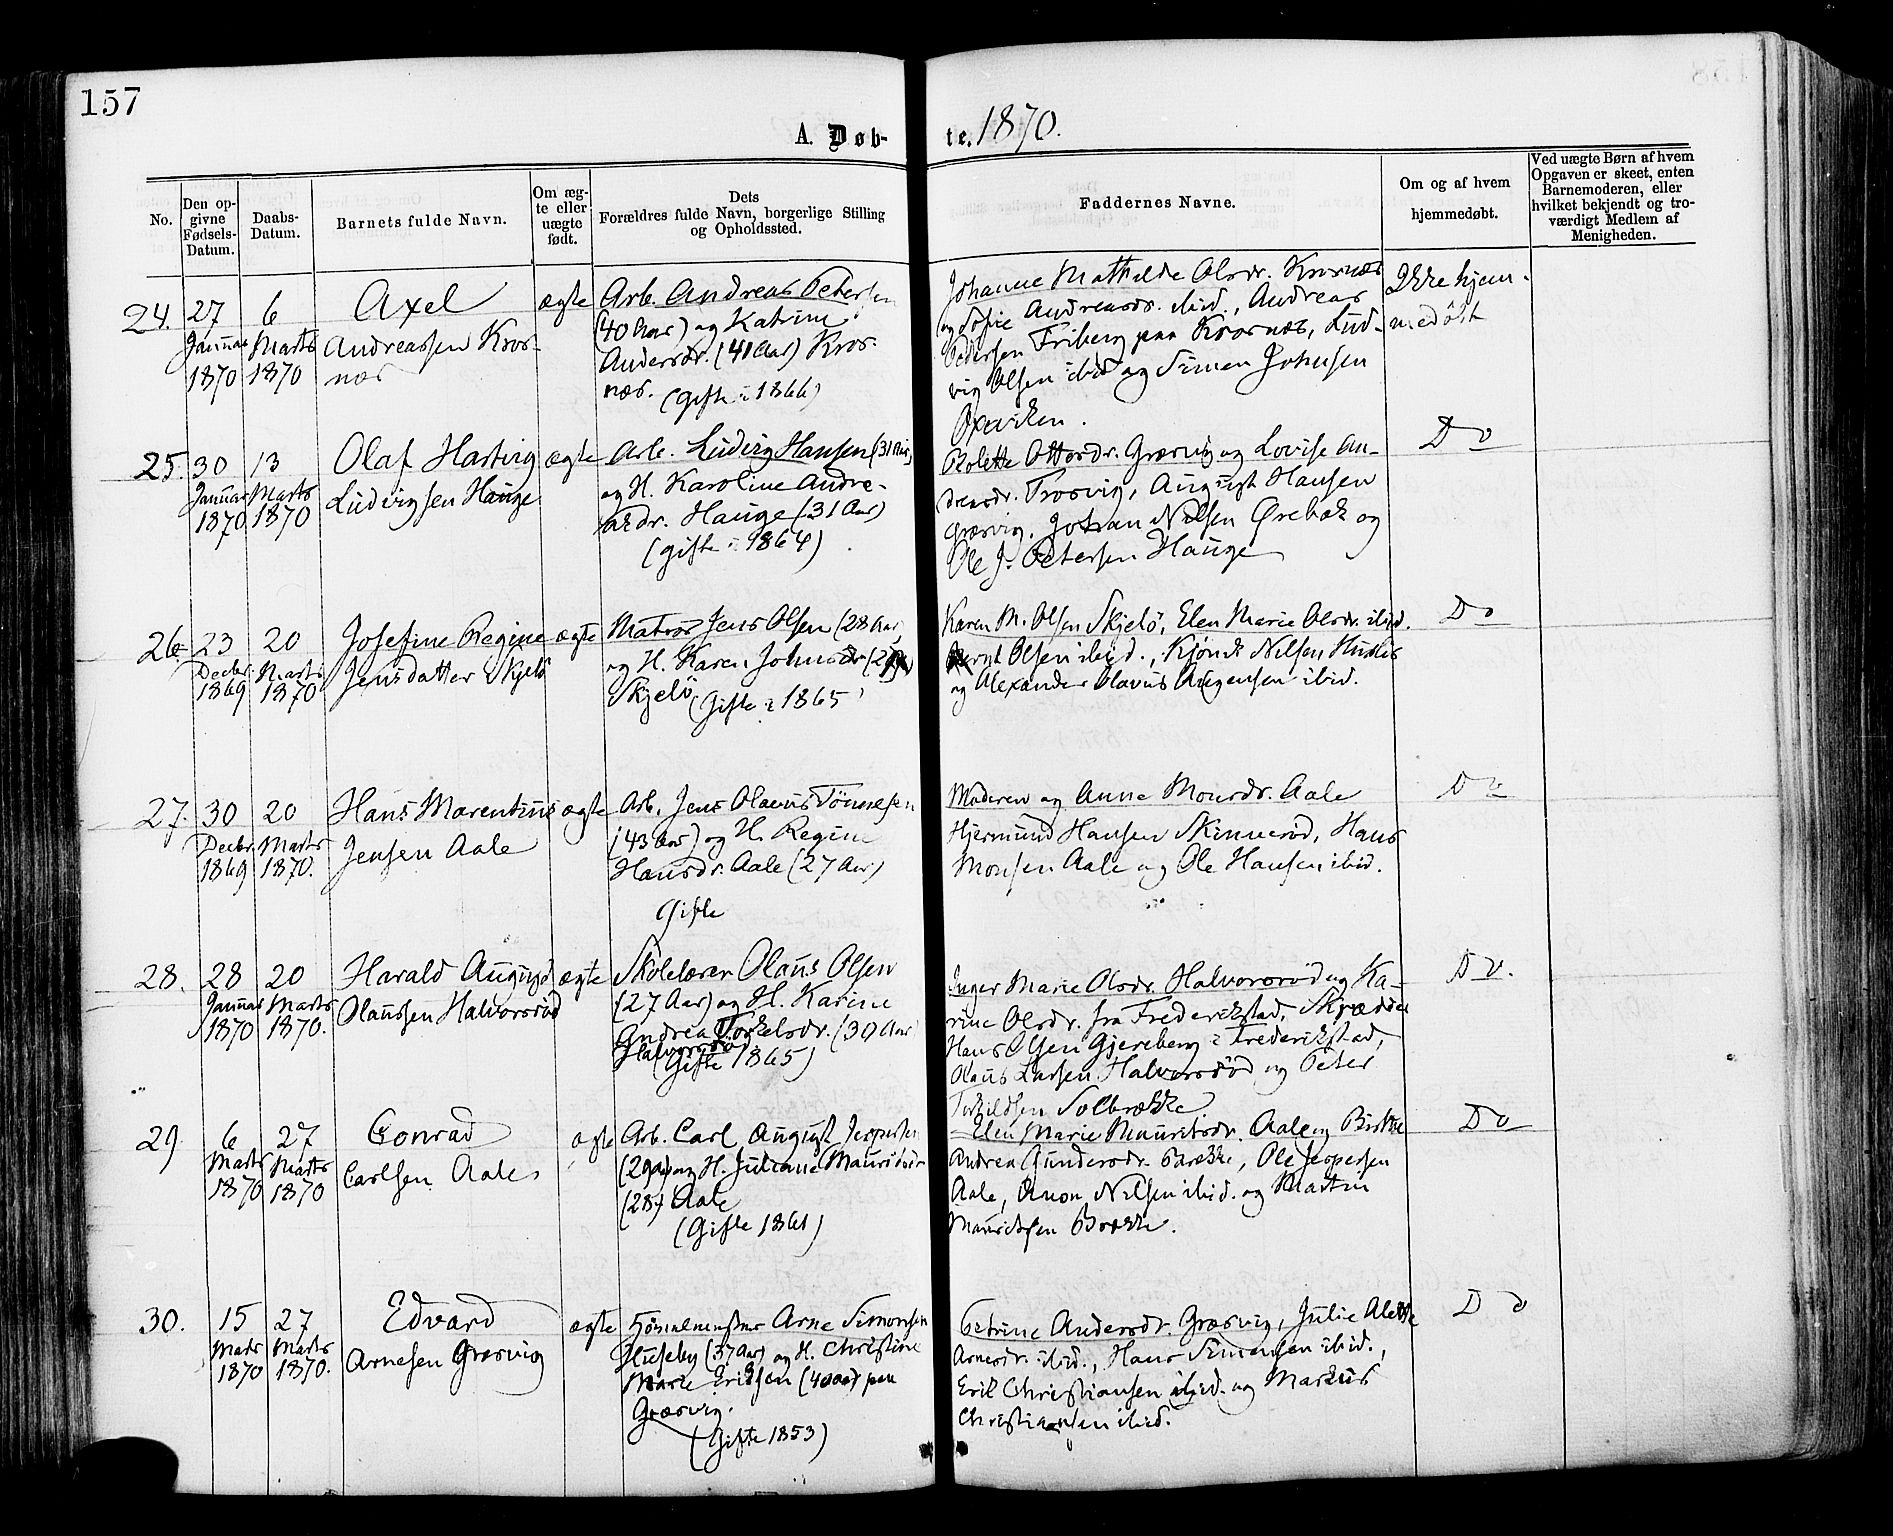 157
A. Døb-
te. 1870.
No.
Den op-
givne
Fødsels-
Datum.
Daabs-
Datum.
Barnets fulde Navn.
Om æg-
te eller
uægte
født.
Dets
Forældres fulde Navn, borgerlige Stilling
og Opholdssted.
Faddernes Navne.
Om og af hvem
hjemmedøbt.
Ved uægte Børn af hvem
Opgaven er skeet, enten
Barnemoderen, eller
hvilket bekjendt og tro-
værdigt Medlem af
Menigheden.
24.
27
Januar
1870
6
Marts
1870
Axel
Andreassen Kros-
næs
ægte
Arb. Andreas Petersen
(40 Aar) og Katrine
Andersdr. (41 Aar) Kros-
næs.
(gifte i 1866)
Johanne Mathilde Olsdr. Krosnæs
og Sofie Andreasdr. ibid., Andreas
Pedersen Friberg paa Krosnæs, Lud-
vig Olsen ibid og Simen Johnsen
Oxeviken.
Ikke hjem-
medøbt
25.
30
Januar
1870
13
Marts
1870
Olaf Hartvig
Ludvigsen Hauge
ægte
Arb. Ludvig Hansen (31 Aar)
og H. Karoline Andre-
asdr. Hauge (31 Aar)
(gifte i 1864)
Bolette Ottosdr. Græsvig og Lovise An-
dreasdr. Trosvig, August Hansen
Græsvig, Johan Nilsen Ørebæk og
Ole J. Petersen Hauge
Do
26
23
Decbr
1869
20
Marts
1870
Josefine Regine
Jensdatter Skjelø
ægte
Matros Jens Olsen (28 Aar)
og H. Karen Johnsdr
Skjelø (Gifte i 1865)
Karen M. Olsen Skjelø, Elen Marie Olsdr. ibid.
Bernt Olsen ibid., Kjønik Nilsen
og Alexander Olavus Augensen ibid.
Do
27.
30
Decbr.
1869
20
Marts
1870.
Hans Marentius
Jensen Aale
ægte
Arb. Jens Olavus Tønnesen
(43 Aar) og H. Regine
Hansdr. Aale (27 Aar)
Gifte
Moderen og Anne Monsdr. Aale
Hjermund Hansen Skinnerød, Hans
Monsen Aale og Ole Hansen ibid.
Do
28.
28
Januar
1870
20
Marts
1870.
Harald August
Olaussen Halvorsrød
ægte
Skolelærer Olaus Olsen
(27 Aar) og H. Karine
Andrea Torkelsdr. (30 Aar)
Halvorsrød
(Gifte 1865)
Inger Marie Olsdr. Halvorsrød og Ka-
rine Olsdr. fra Frederikstad, Skrædder
Hans Olsen Gjereberg i Frederikstad,
Olaus Larsen Halvorsrød og Peter
Torkildsen Solbrække
Do.
29
6
Marts
1870
27
Marts
1870
Conrad
Carlsen Aale
ægte
Arb. Carl August Jespersen
(29 Aar) og H. Juliane Mauritsdr
(28) Aale
(Gifte 1861)
Elen Marie Mauritsdr. Aale og
Andrea Gundersdr. Brække, Ole Jespersen
Aale, Anon Nilsen ibid. og Martin
Mauritssen Brække.
Do
30.
15
Marts
1870
27
Marts
1870.
Edvard
Arnesen Græsvig
ægte
Arne Simonsen
Huseby (37 Aar) og H. Christine
Marie Eriksen (40 Aar) paa
Græsvig.
(Gifte 1853)
Petrine Andersdr. Græsvig, Julie Alette
Arnesdr. ibid., Hans Simensen ibid.,
Erik Christiansen ibid. og Markus
Christiansen ibid.
Do